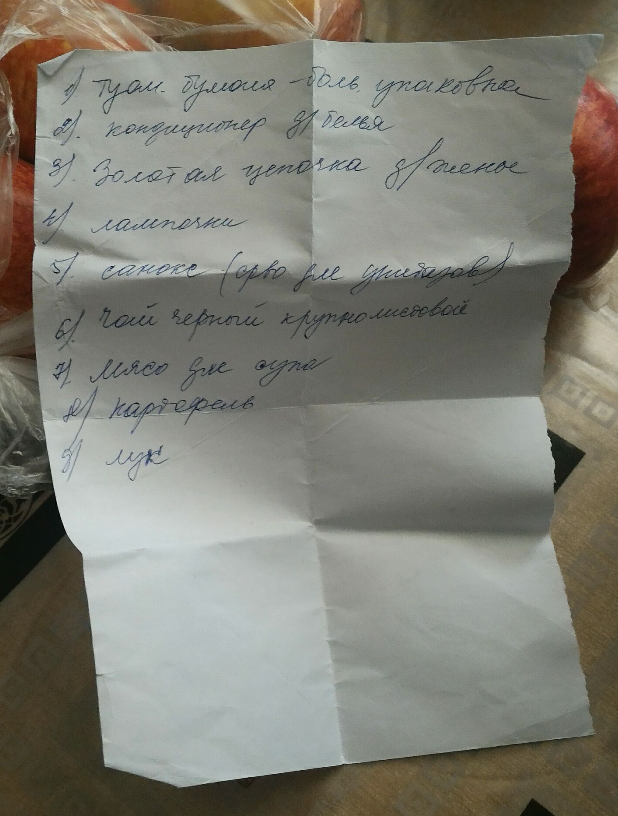 1) туал. бумага - боль. упаковка
2). кондиционер д/белья
3). Золотая цепочка д/жены
4) лампочки
5). санокс (ср-во для унитазов)
6). Чай черный крупнолистовой
7) мясо для супа
8) картофель
9) лук